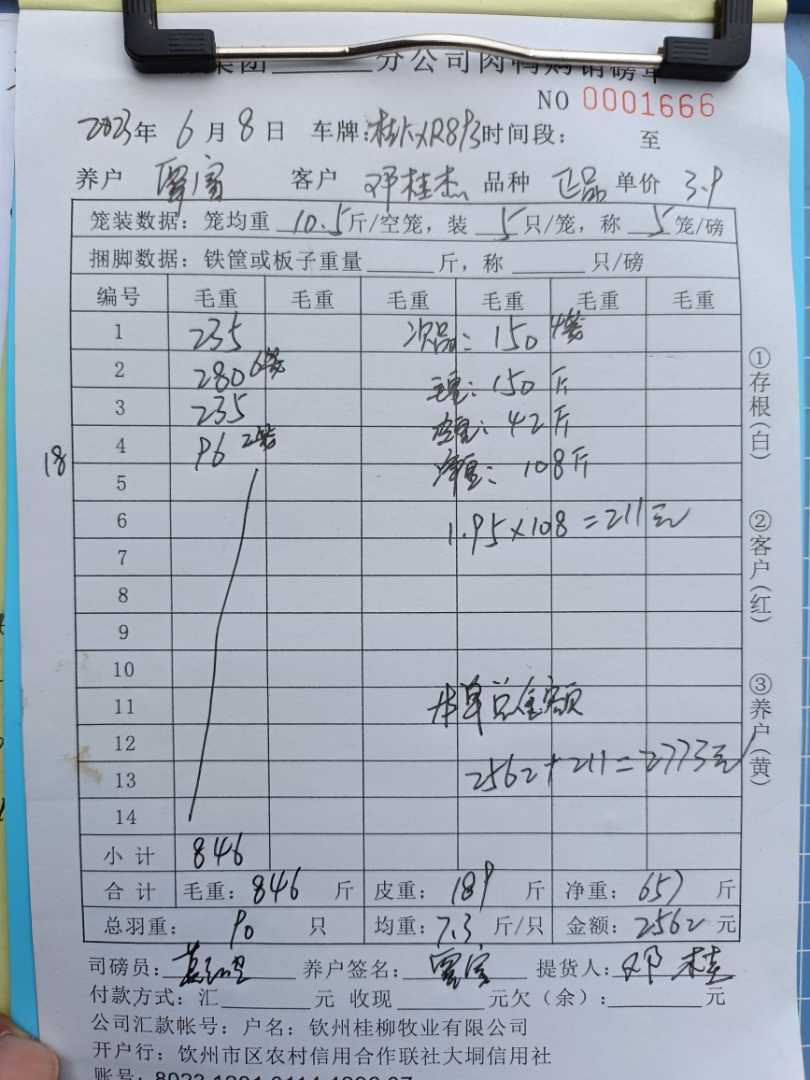 集团______分公司肉鸭购销磅单
NO 0001666
2023年 6月8日 车牌: 时间段: 至
养户 覃富 客户 邓桂杰 品种 正品 单价 3.9
笼装数据: 笼均重 10.5斤/空笼, 装 5只/笼, 称 5笼/磅
捆脚数据: 铁筐或板子重量______斤, 称______只/磅
编号 毛重 毛重 毛重 毛重 毛重 毛重
1 235 次品: 150 4笼
2 280 6笼 毛重: 150斤
3 235 皮重: 42斤
4 96 2笼 净重: 108斤
18
5
6 1.95×108=211元
7
8
9
10
11 本单总金额
12
13 2562+211=2773元
14
小计 846
合计 毛重: 846 斤 皮重: 189 斤 净重: 657 斤
总羽重: 90 只 均重: 7.3 斤/只 金额: 2562 元
司磅员: 养户签名: 覃富 提货人: 邓桂
付款方式: 汇______元 收现______元欠(余):______元
公司汇款帐号: 户名: 钦州桂柳牧业有限公司
开户行: 饮州市区农村信用合作联社大垌信用社
①存根(白)
②客户(红)
③养户(黄)